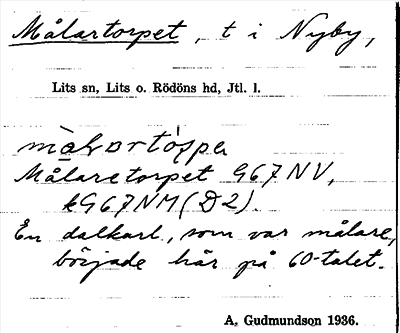 Målartorpet, t i Nyby,
Lits sn, Lits o. Rödöns hd, Jtl. l.
Måларetorpet G67NV,
kG67NM (D2).
En dalkarl, som var målare,
började här på 60-talet.
A. Gudmundson 1936.